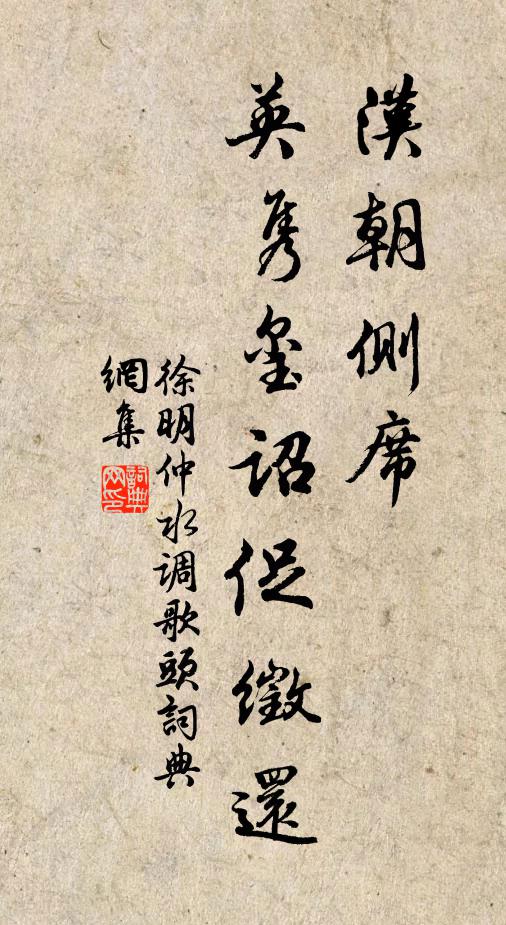 漢朝側席
英隽璽詔促徵還
徐明仲水调歌頭詞典
網集
詞典
网印